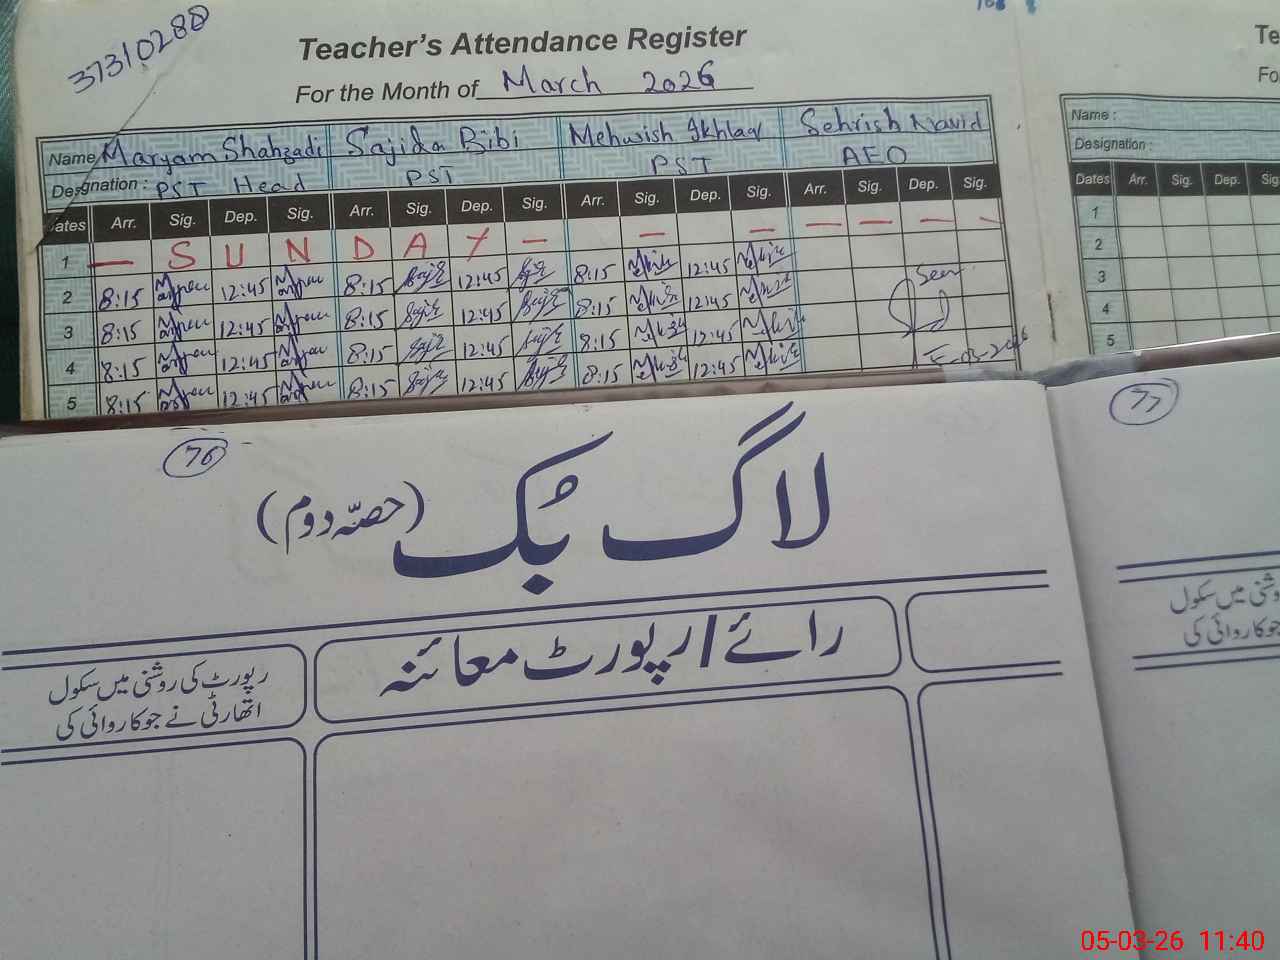 37310288
Teacher's Attendance Register
For the Month of March 2026
Name Maryam Shahzadi Sajida Bibi Mehwish Ikhlaq Sehrish Navid
Designation: PST Head PST PST AEO
Dates Arr. Sig. Dep. Sig. Arr. Sig. Dep. Sig. Arr. Sig. Dep. Sig. Arr. Sig. Dep. Sig.
1 — S U N D A Y — — — — — — —
2 8:15 12:45 8:15 12:45 8:15 12:45 Seen
3 8:15 12:45 8:15 12:45 8:15 12:45
4 8:15 12:45 8:15 12:45 8:15 12:45
5 8:15 12:45 8:15 12:45 8:15 12:45
Te
Fo
Name :
Designation :
Dates Arr. Sig. Dep. Sig
1
2
3
4
5
76
لاگ بُک (حصّہ دوم)
رائے/رپورٹ معائنہ
رپورٹ کی روشنی میں سکول
اتھارٹی نے جو کاروائی کی
77
روشنی میں سکول
جو کاروائی کی
05-03-26 11:40